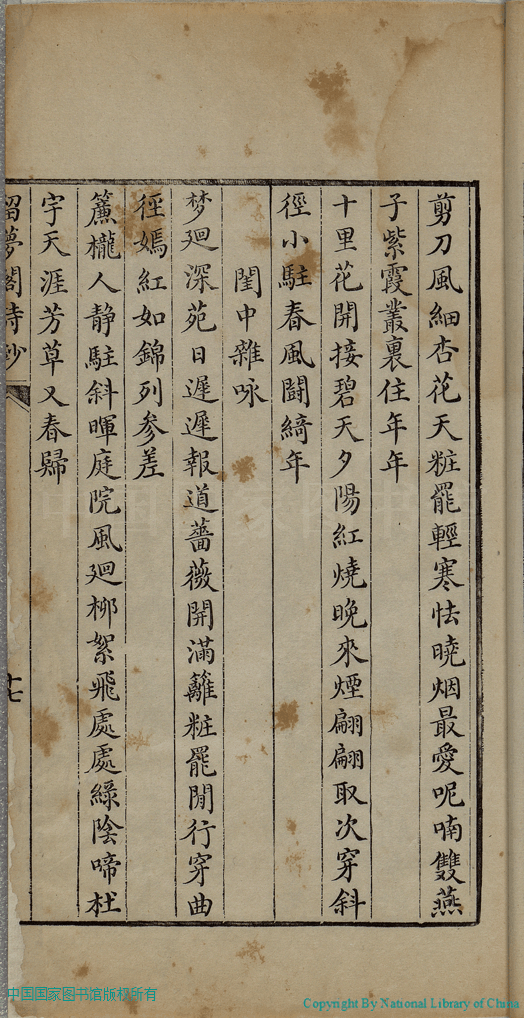 剪刀風細杏花天粧罷輕寒怯曉烟最愛呢喃雙燕
子紫霞叢裏住年年
十里花開接碧天夕陽紅燒晚來煙翩翩取次穿斜
徑小駐春風鬪綺年
閨中雜咏
梦廻深苑日遲遲報道薔薇開滿籬粧罷閒行穿曲
徑嫣紅如錦列参差
簾櫳人静駐斜暉庭院風廻柳絮飛處處綠陰啼杜
宇天涯芳草又春歸
留夢閣詩鈔
十七
中国国家图书馆
中国国家图书馆版权所有
Copyright By National Library of China